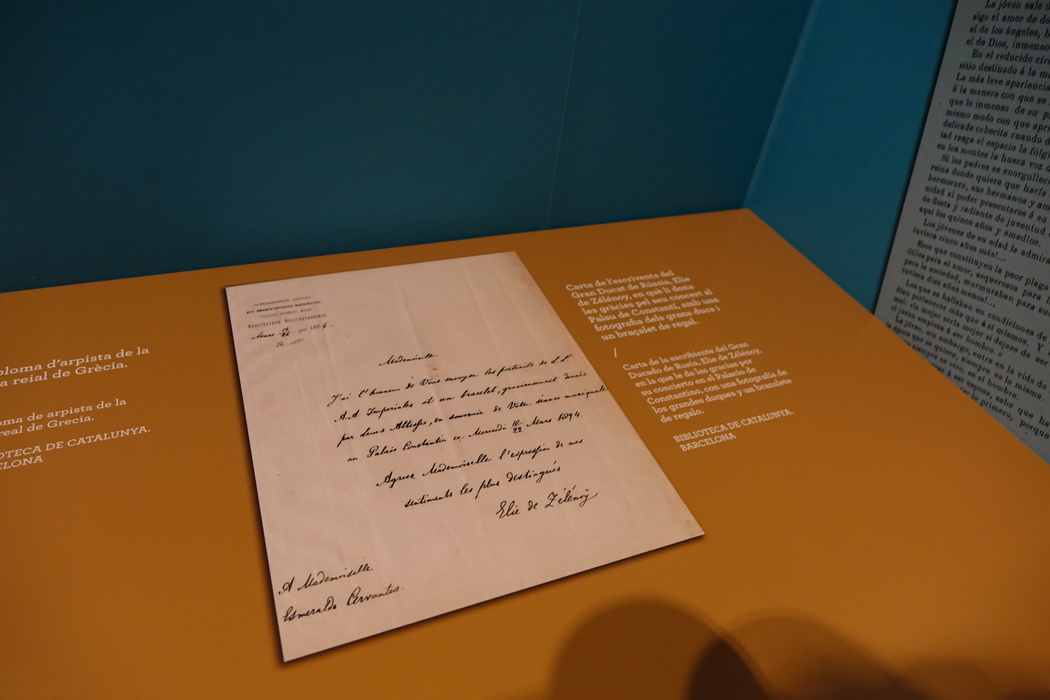 ploma d'arpista de la
a reial de Grècia.
oma de arpista de la
real de Grecia.
OTECA DE CATALUNYA.
ELONA
Mademoiselle
J'ai l'honneur de Vous envoyer les portraits de L.L.
A.A Imperiales et un bracelet, gracieusement donés
par Leurs Altesses, en souvenir de Votre séance musicale
au Palais Constantin ce Mercredi 10/22 Mars 1894.
Agreez Mademoiselle l'expression de mes
sentiments les plus distingués
Elie de Zélénoÿ
A Mademoiselle
Esmeralda Cervantes.
Carta de l'escrivent del
Gran Ducat de Rússia, Elie
de Zélénoy, en què li dona
les gràcies pel seu concert al
Palau de Constantí, amb una
fotografia dels grans ducs i
un braçalet de regal.
/
Carta de la escribiente del Gran
Ducado de Rusia, Elie de Zélénoy,
en la que le da las gracias por
su concierto en el Palacio de
Constantino, con una fotografía de
los grandes duques y un brazalete
de regalo.
BIBLIOTECA DE CATALUNYA.
BARCELONA
La jóven sale d
sigo el amor de do
el de los ángeles, l
el de Dios, inmenso
En el reducido cír
sitio destinado á la mu
La más leve aparienci
á la manera con que se
que lo inmenso de su p
mismo modo con que apri
delicada cabecita cuando d
tad rasga el espacio la fúlgi
en los montes la hueca voz d
Si los padres se enorgullec
reina donde quiera que hacía
hermosura, sus hermanos y am
nidad al poder presentarse á su
de fiesta y radiante de juventud
aquí los quince años y amadlos,
Los jóvenes de su edad la admira
tuviera cinco años más!...
Esos que constituyen la peor plaga
útiles para el amor, asquerosos para l
para la sociedad, murmuraban para su
tuviera diez años menos!...
Los que se hallaban en condiciones de